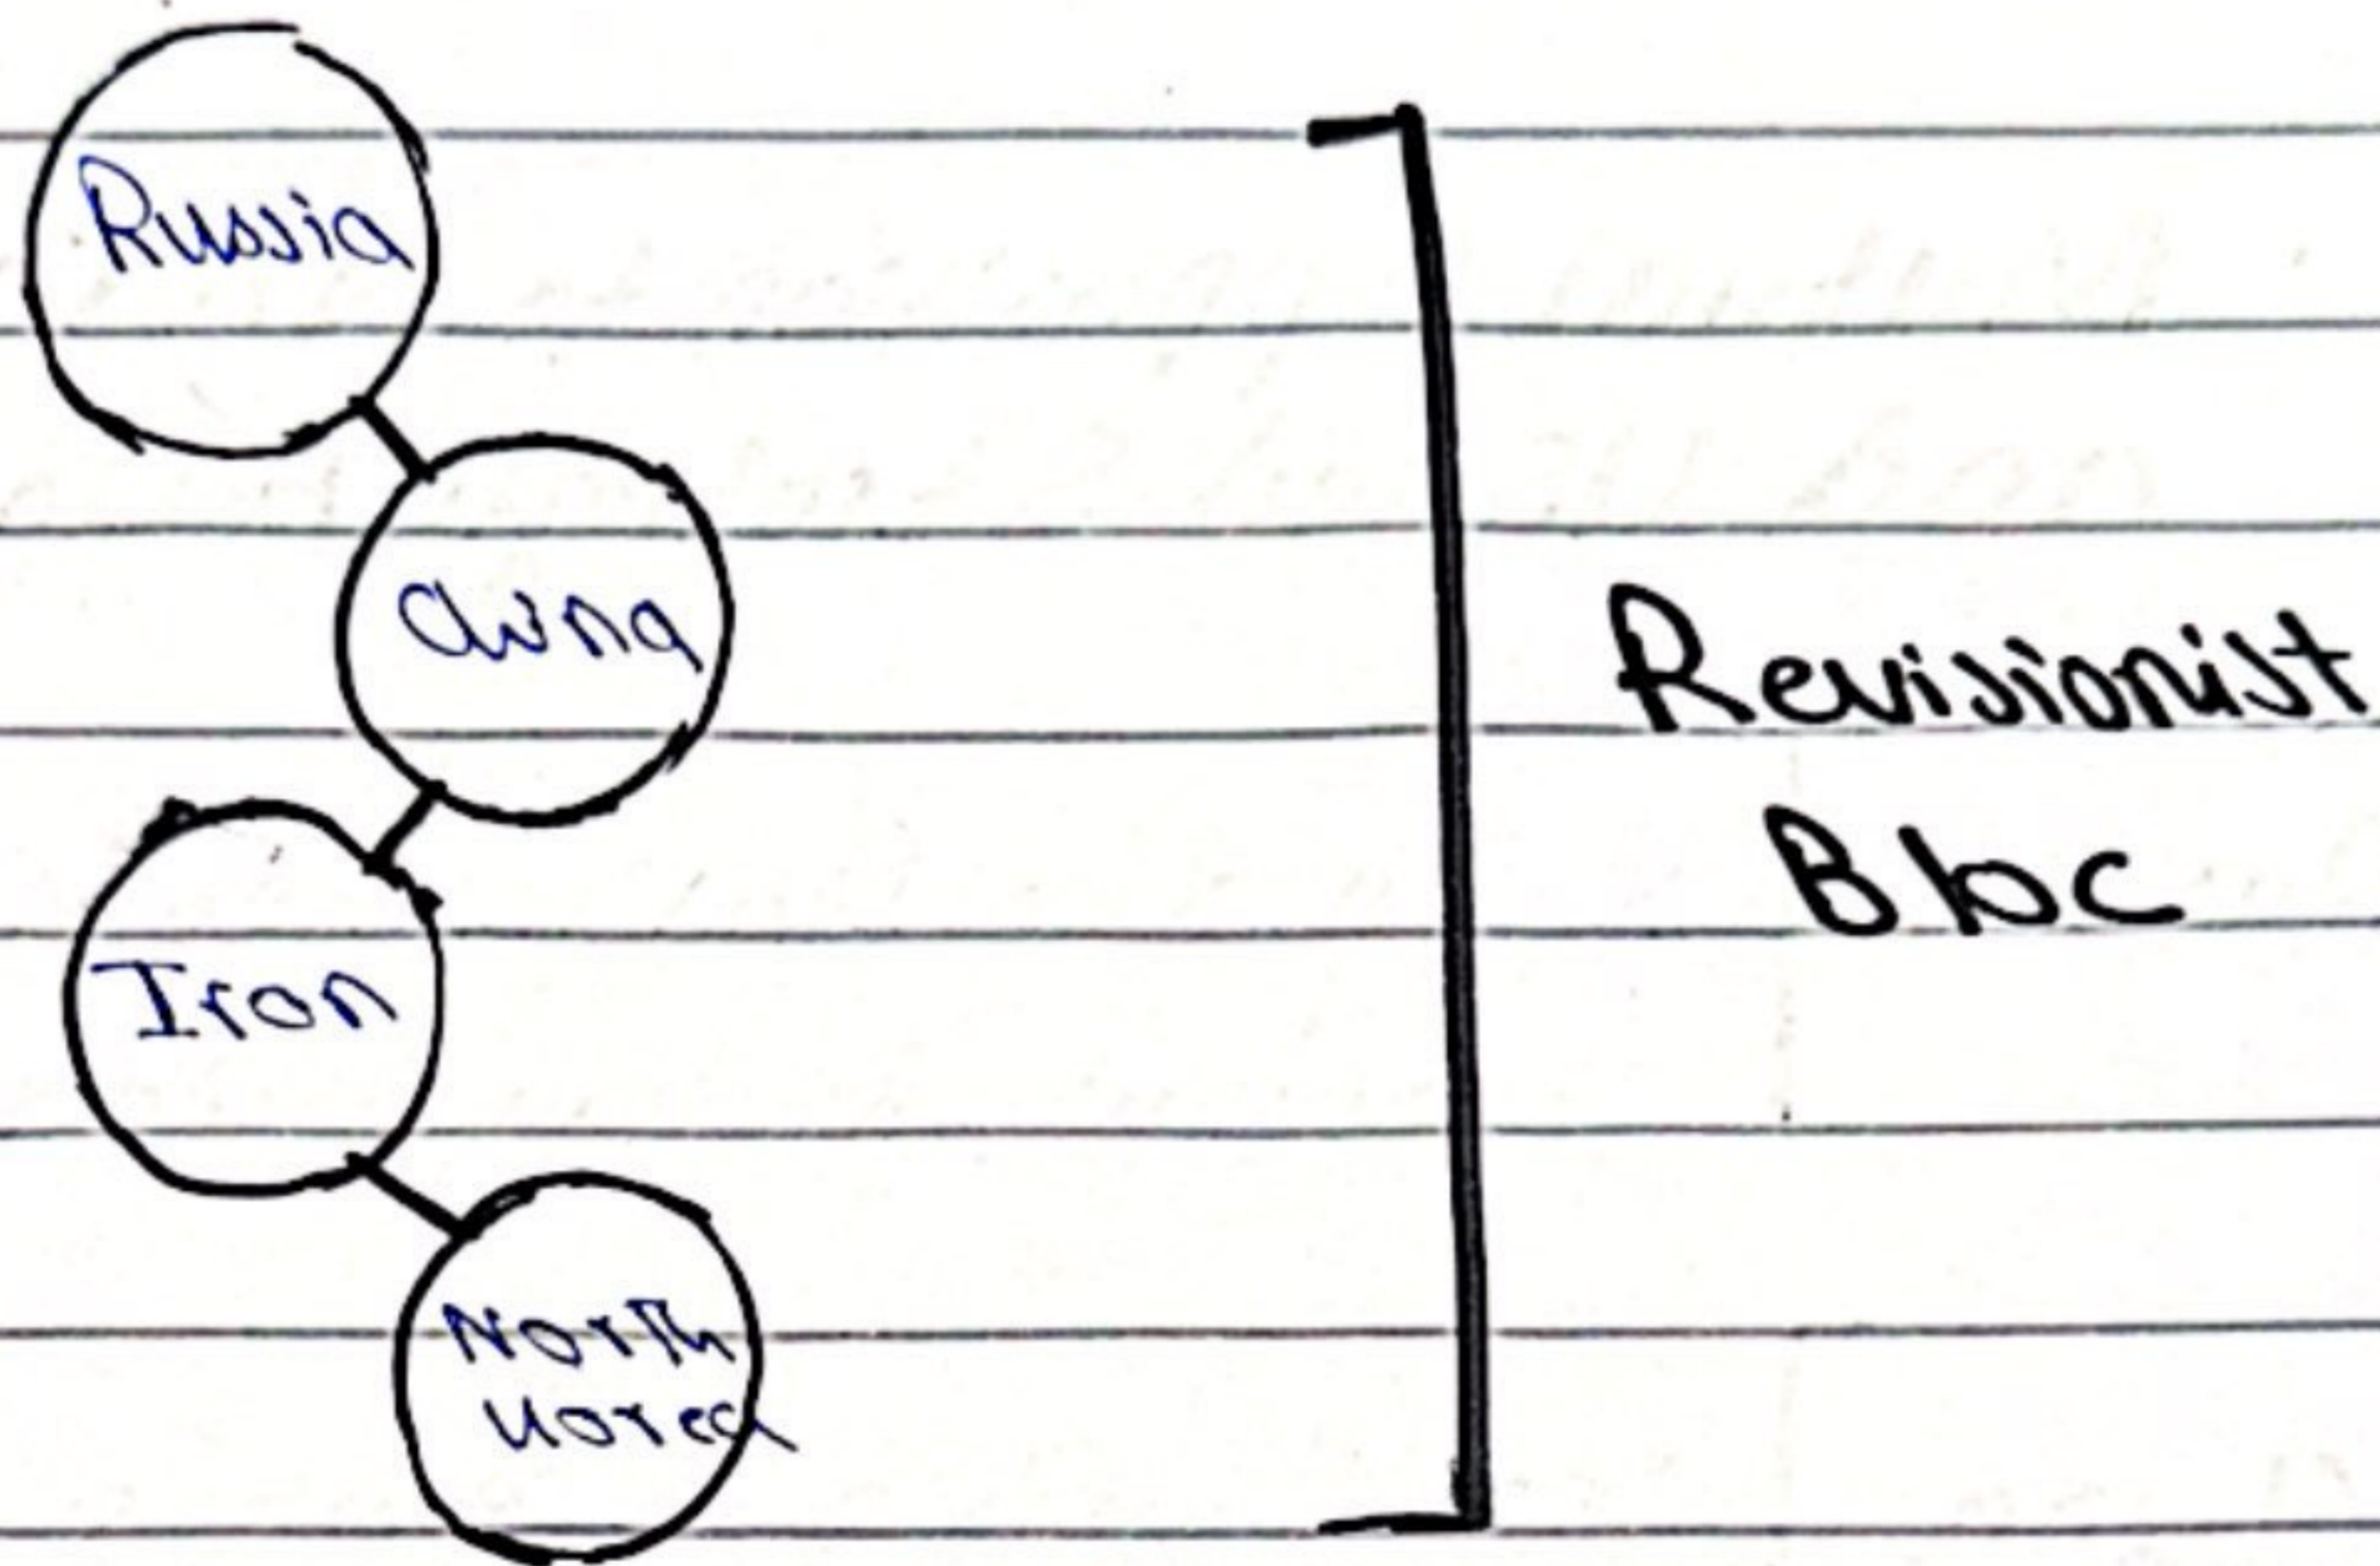 Russia
China
Iran
North
Korea
Revisionist
Bloc